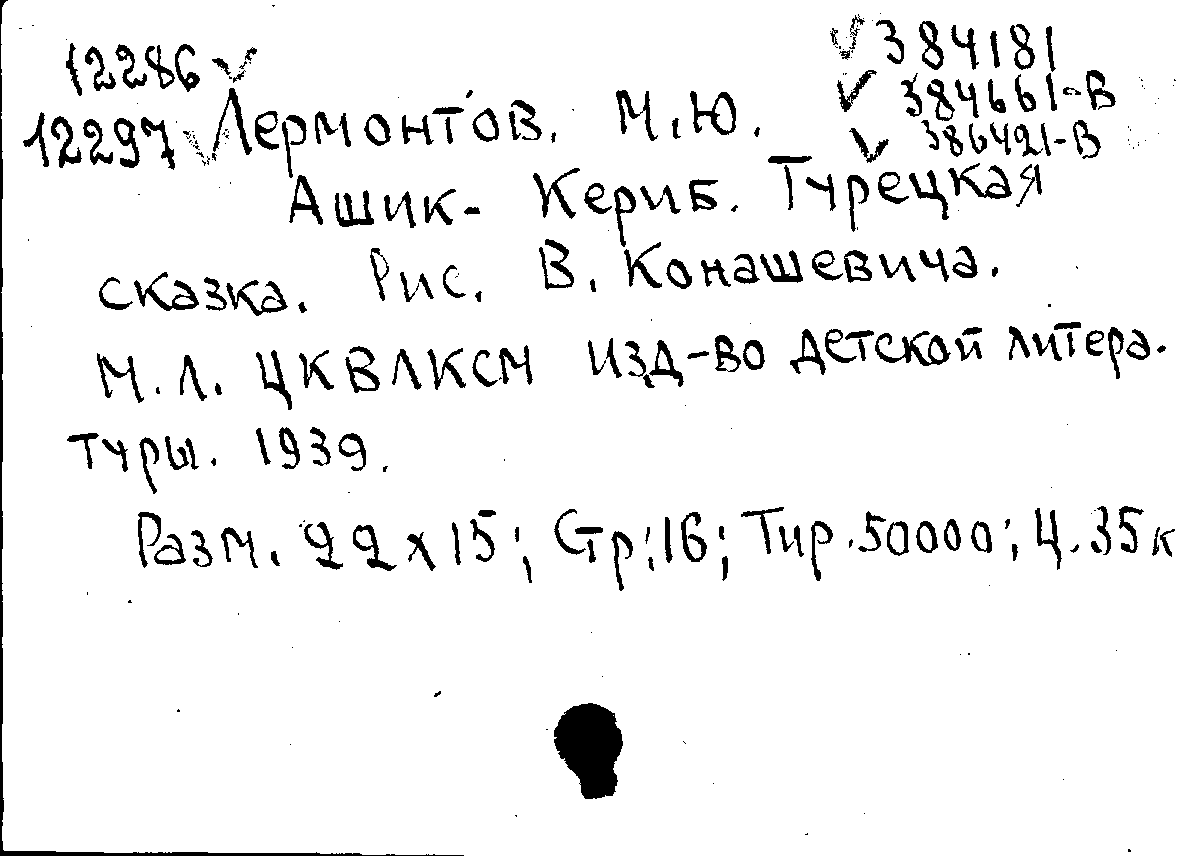 12286 ✓ ✓ 384181
✓ 384661-В
12297 ✓ Лермонтов. М.Ю. ✓ 386421-В
Ашик-Кериб. Турецкая
сказка. Рис. В. Конашевича.
М.Л. ЦКВЛКСМ изд-во детской литера-
туры. 1939.
Разм. 22х15; Стр. 16; Тир. 50000; Ц. 35к